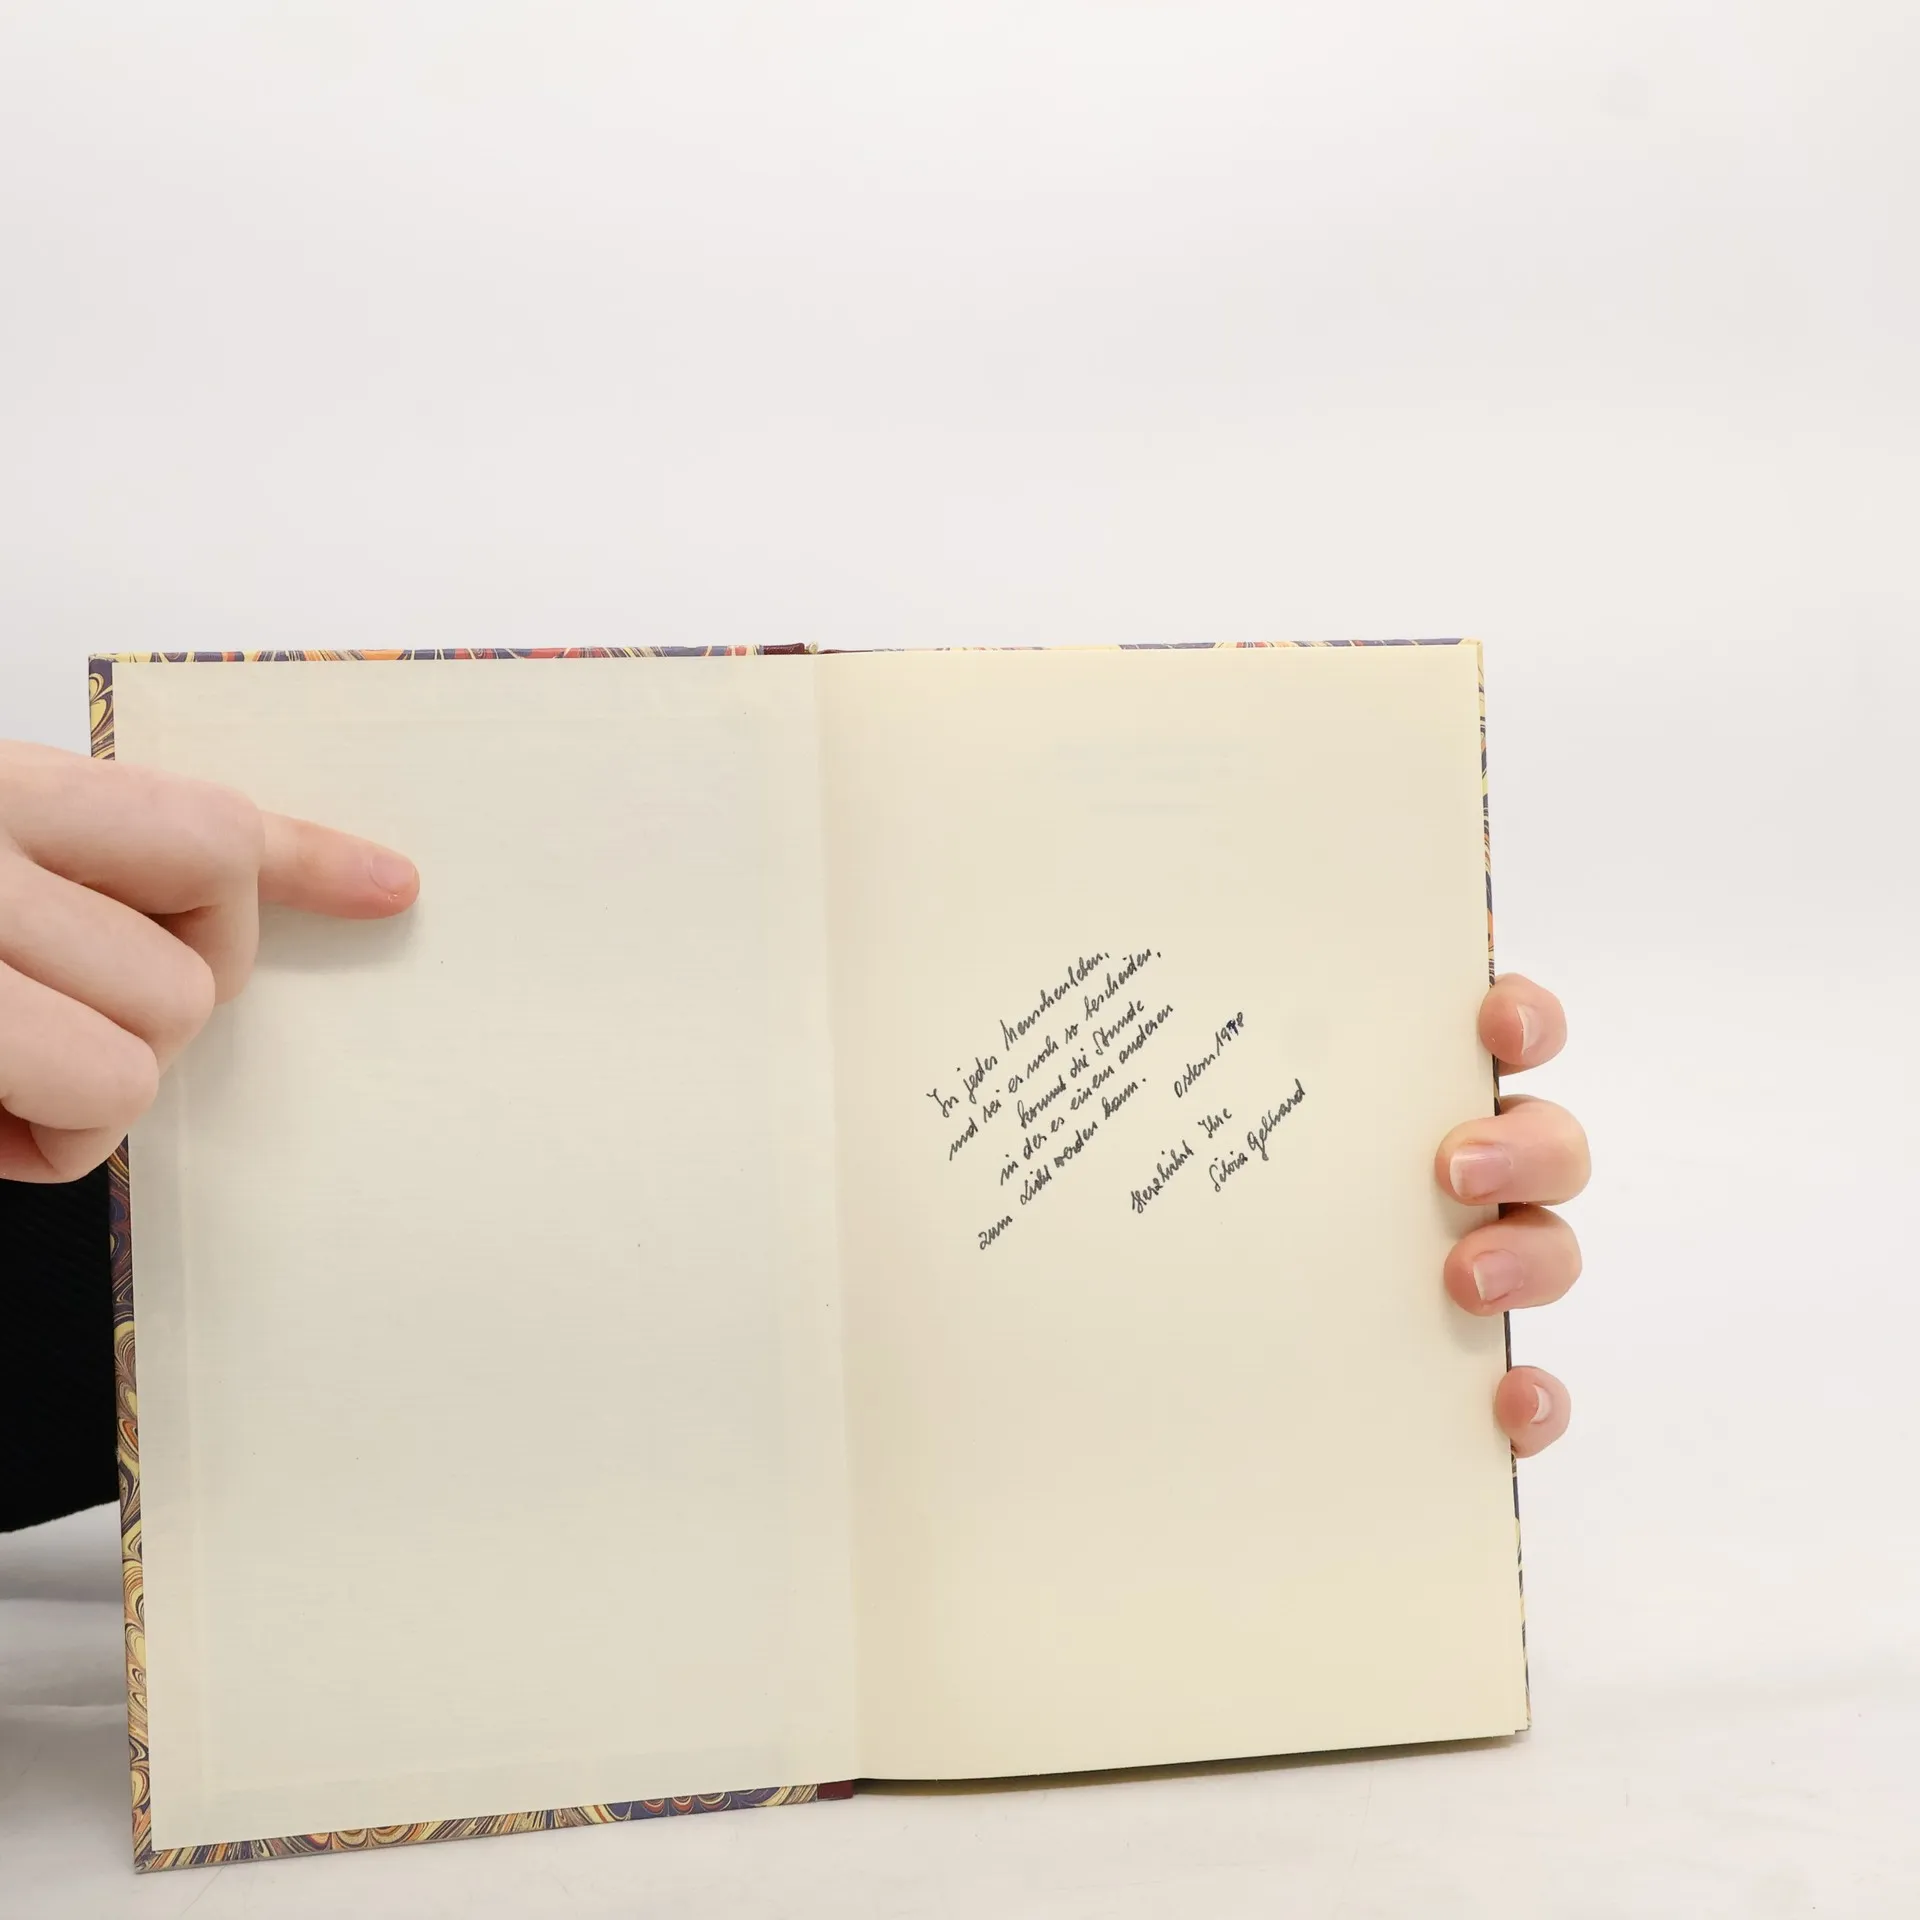 In jedes Menschenleben,
und sei es noch so bescheiden,
kommt die Stunde
in der es einem anderen
zum Licht werden kann.
Ostern 1998
Herzlichst Ihre
Silvia Gebhard